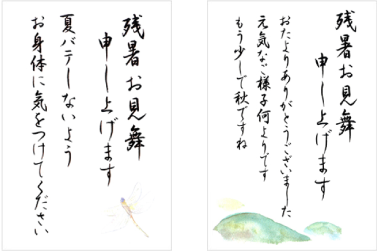 残暑お見舞
申し上げます
夏バテしないよう
お身体に気をつけてください
残暑お見舞
申し上げます
おたよりありがとうございました
元気なご様子何よりです
もう少しで秋ですね